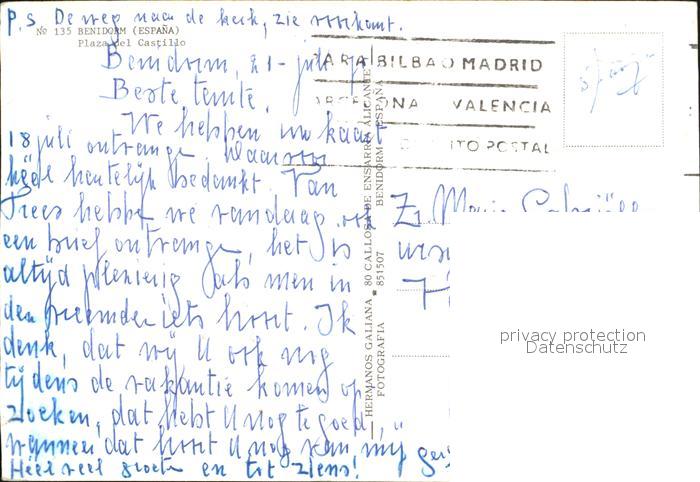 P.S. De weg naar de kerk, zie voorkant.
Nº 135 BENIDORM (ESPAÑA)
Plaza del Castillo
Benidorm, 21-juli
Beste tante,
We hebben uw kaart
18 juli ontvangen. Waarvoor
héél hartelijk bedankt. Van
Trees hebben we vandaag ook
een brief ontvangen, het is
altijd plezierig als men in
den vreemde iets hoort. Ik
denk, dat wij U ook nog
tijdens de vakantie komen op
zoeken, dat hebt U nog te goed,
wanneer dat hoort U nog van mij
Héél veel groeten en tot ziens!
PARA BILBAO MADRID
BARCELONA VALENCIA
DISTRITO POSTAL
HERMANOS GALIANA * 80 CALLOSA DE ENSARRIA, ALICANTE
FOTOGRAFIA 851507 BENIDORM * ESPAÑA
Zr Maria
privacy protection
Datenschutz